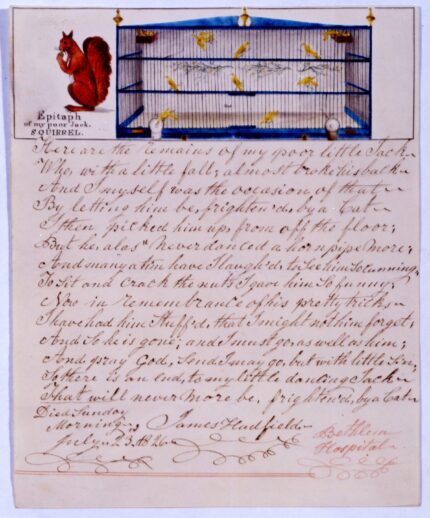 Epitaph
of my poor Jack.
SQUIRREL.
Here are the remains of my poor little Jack
Who, with a little fall, almost broke his back
And I myself was the occasion of that
By letting him be, frighten'd, by a Cat
I then picked him up, from off the floor;
But he, alas! Never danced a hornpipe More;
And many a time have I laugh'd, to See him So cunning
To Sit and crack the nuts I gave him So funny
Now in remembrance of his pretty tricks
I have had him Stuff'd, that I might not him forget;
And So he is gone, and I must go, as well as him;
And pray God, Send I may go, but with little Sin;
So there is an End, to my little dancing Jack
That will never more be, frighten'd, by a Cat
Died Sunday
Morning, James Hadfield
July 23. 1826
Bethlem
Hospital